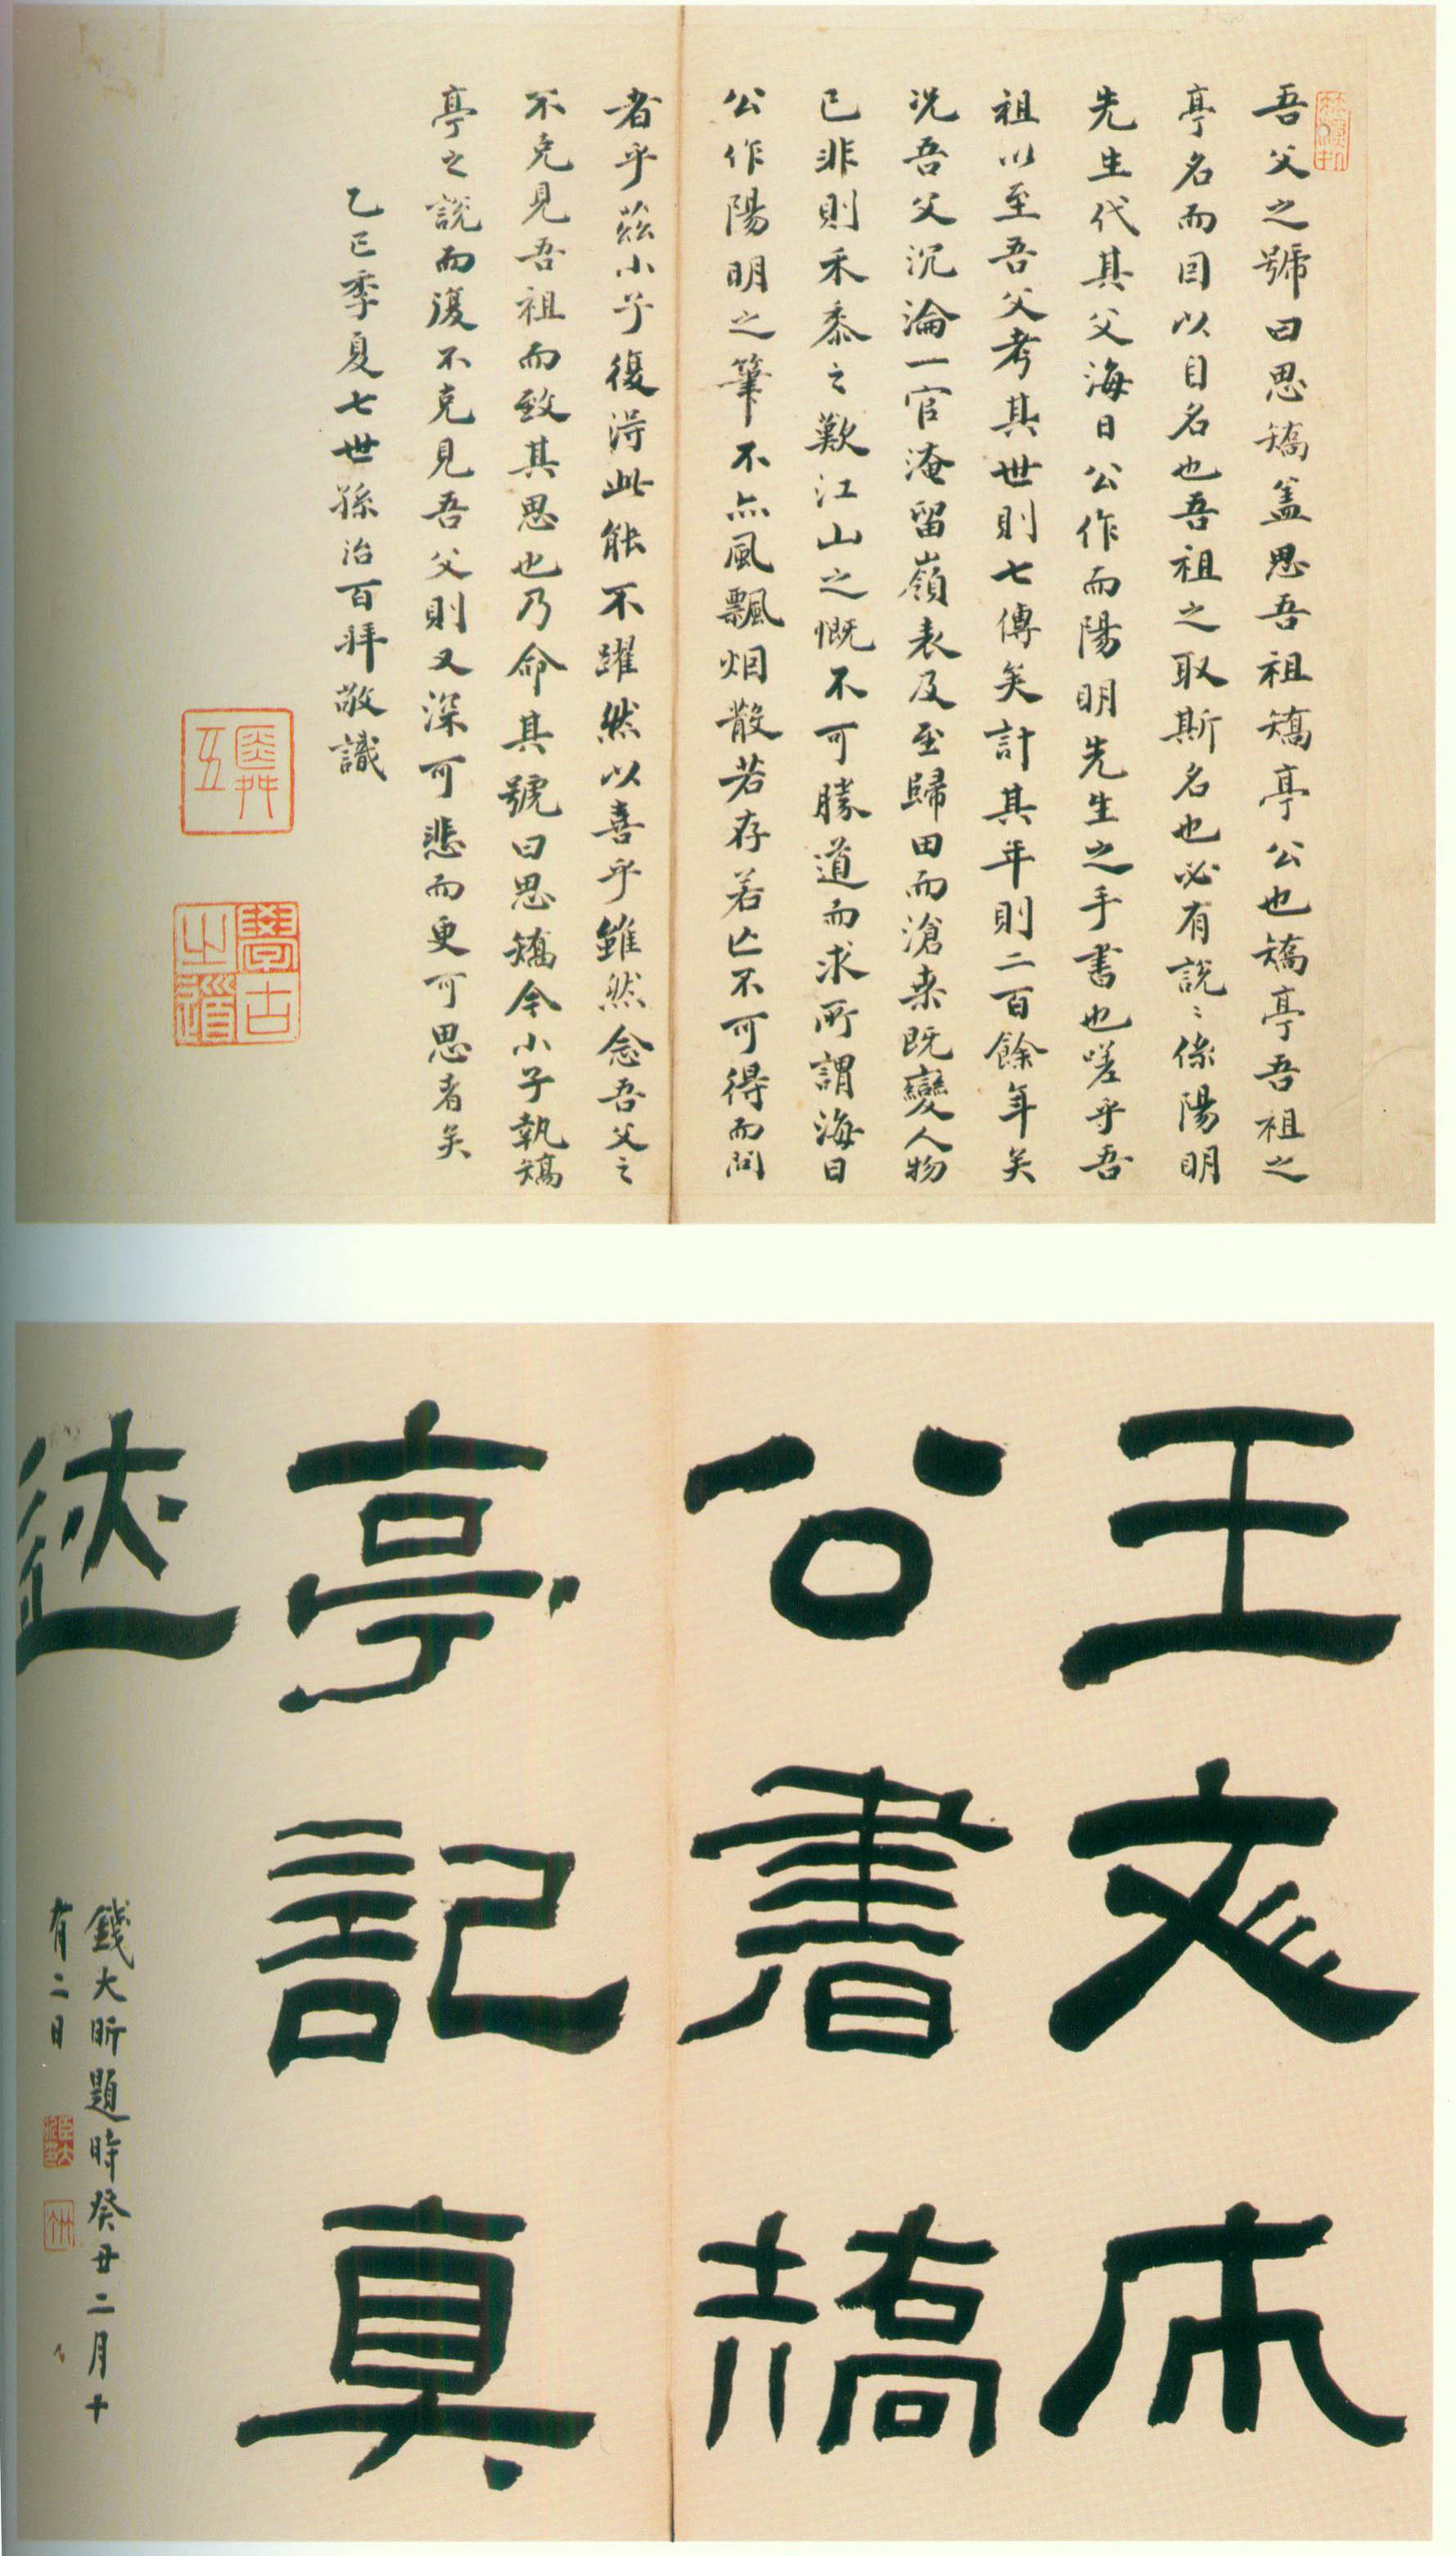 吾父之號曰思矯盖思吾祖矯亭公也矯亭吾祖之
亭名而因以自名也吾祖之取斯名也必有說〻係陽明
先生代其父海日公作而陽明先生之手書也嗟乎吾
祖以至吾父考其世則七傳矣計其年則二百餘年矣
況吾父沉淪一官淹留嶺表及至歸田而滄桑既變人物
已非則禾黍之歎江山之慨不可勝道而求所謂海日
公作陽明之筆不亦風飄烟散若存若亡不可得而問
者乎茲小子復得此能不躍然以喜乎雖然念吾父之
不克見吾祖而致其思也乃命其號曰思矯今小子執矯
亭之說而復不克見吾父則又深可悲而更可思者矣
乙巳季夏七世孫治百拜敬識
學古之道
王文成
公書矯
亭記真
迹
錢大昕題時癸丑二月十
有二日